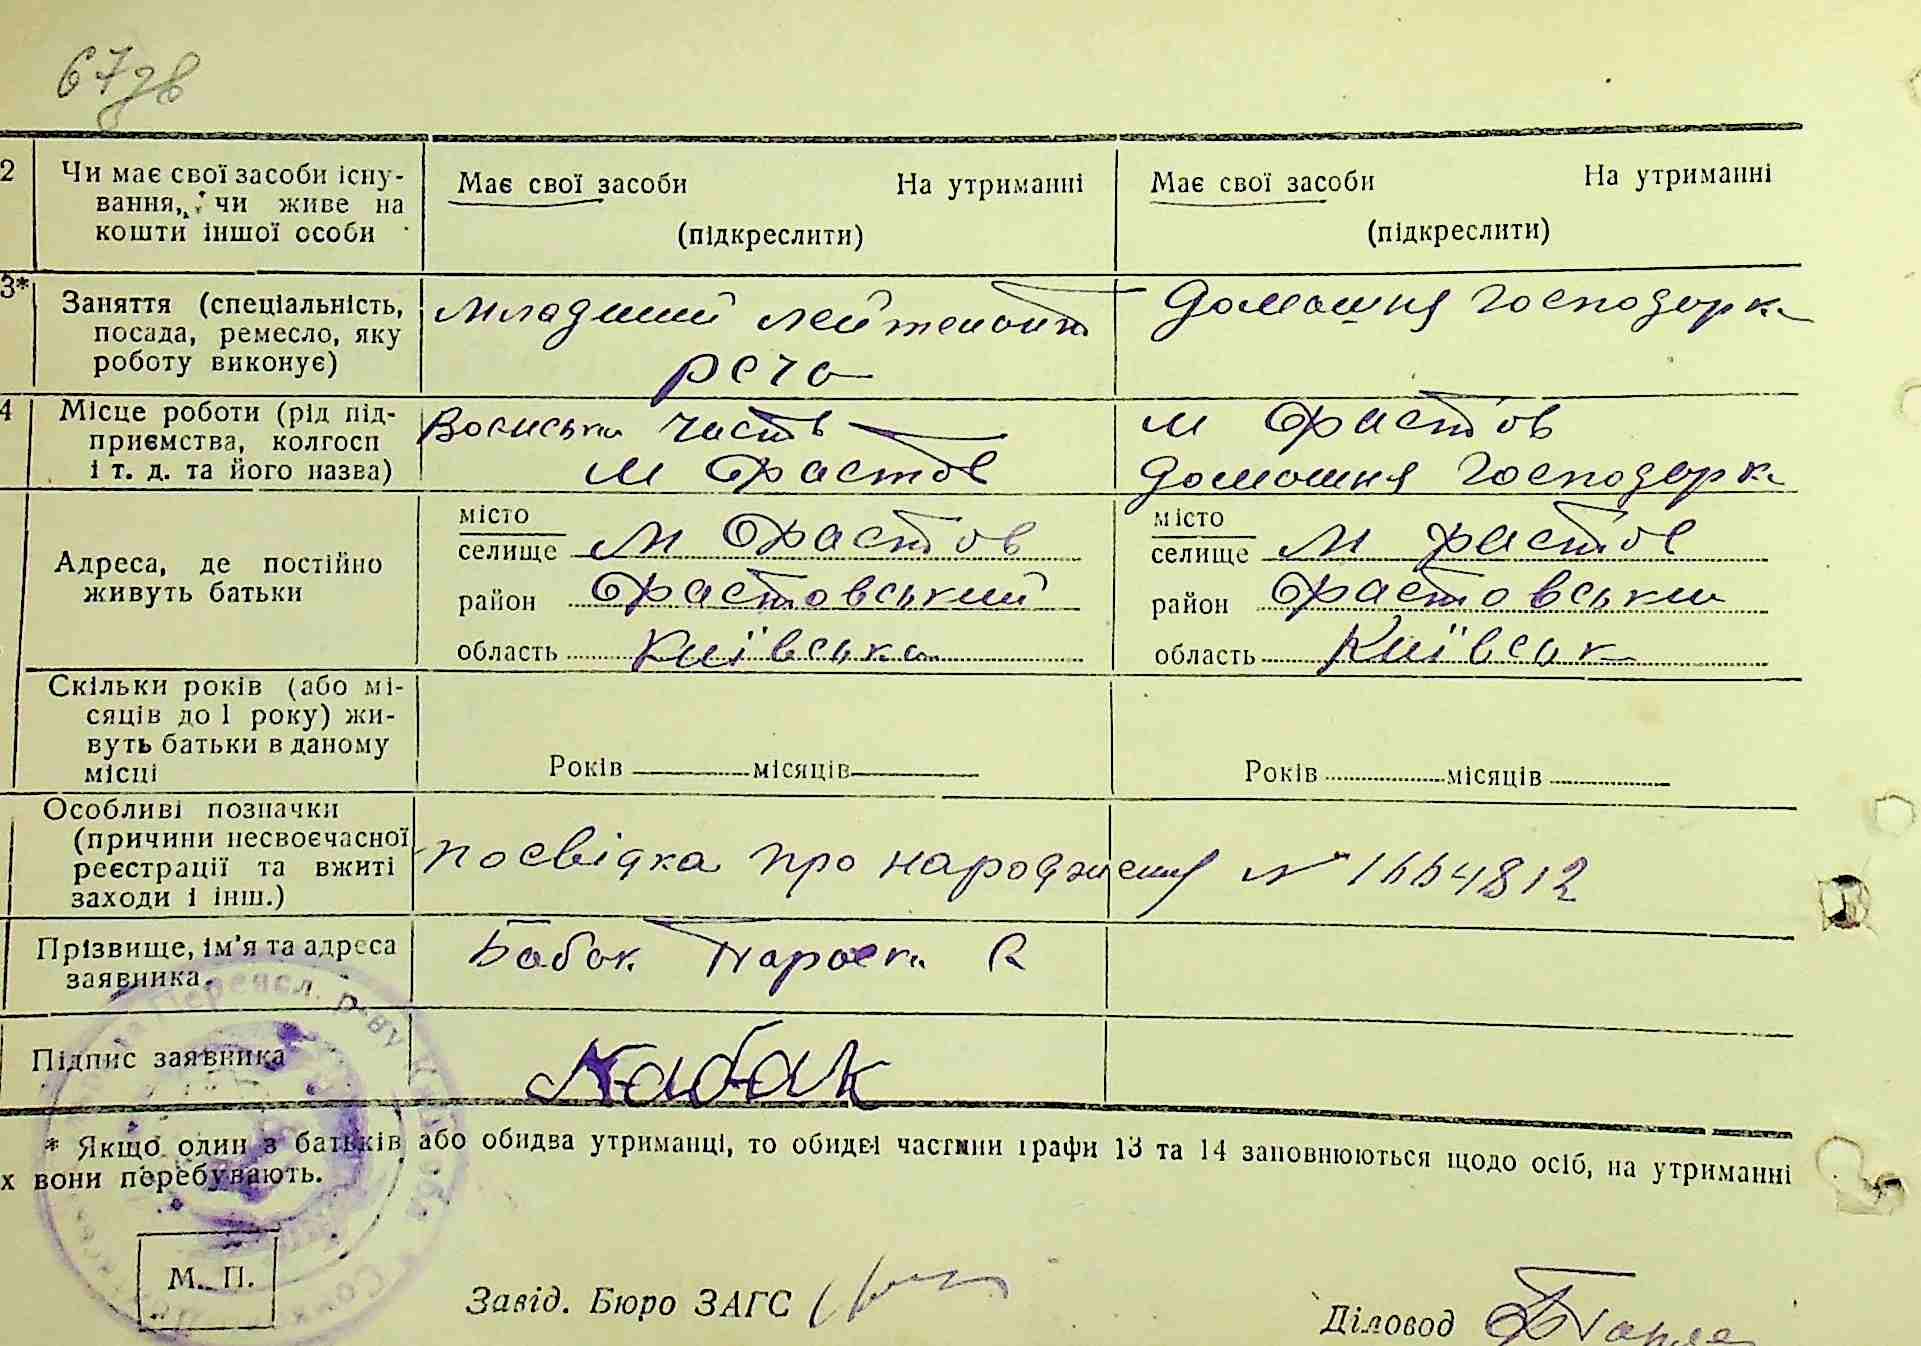 67 зв
2 Чи має свої засоби існу- Має свої засоби На утриманні Має свої засоби На утриманні
вання, чи живе на
кошти іншої особи (підкреслити) (підкреслити)
3* Заняття (спеціальність, Младший лейтенант Домашня господарка
посада, ремесло, яку
роботу виконує)
4 Місце роботи (рід під- Воєнська часть м Фастов
приємства, колгосп
і т. д. та його назва) м Фастов Домашня господарка
місто місто
селище м Фастов селище м Фастов
Адреса, де постійно
живуть батьки район Фастовський район Фастовський
область Київська область Київськ
Скільки років (або мі-
сяців до 1 року) жи-
вуть батьки в даному
місці Років місяців Років місяців
Особливі позначки
(причини несвоєчасної
реєстрації та вжиті посвідка про народження №
заходи і інш.)
Прізвище, ім'я та адреса Бабак Параска
заявника.
Підпис заявника Бабак
* Якщо один з батьків або обидва утриманці, то обидві частини графи 13 та 14 заповнюються щодо осіб, на утриманні
х вони перебувають.
М. П.
Завід. Бюро ЗАГС
Діловод